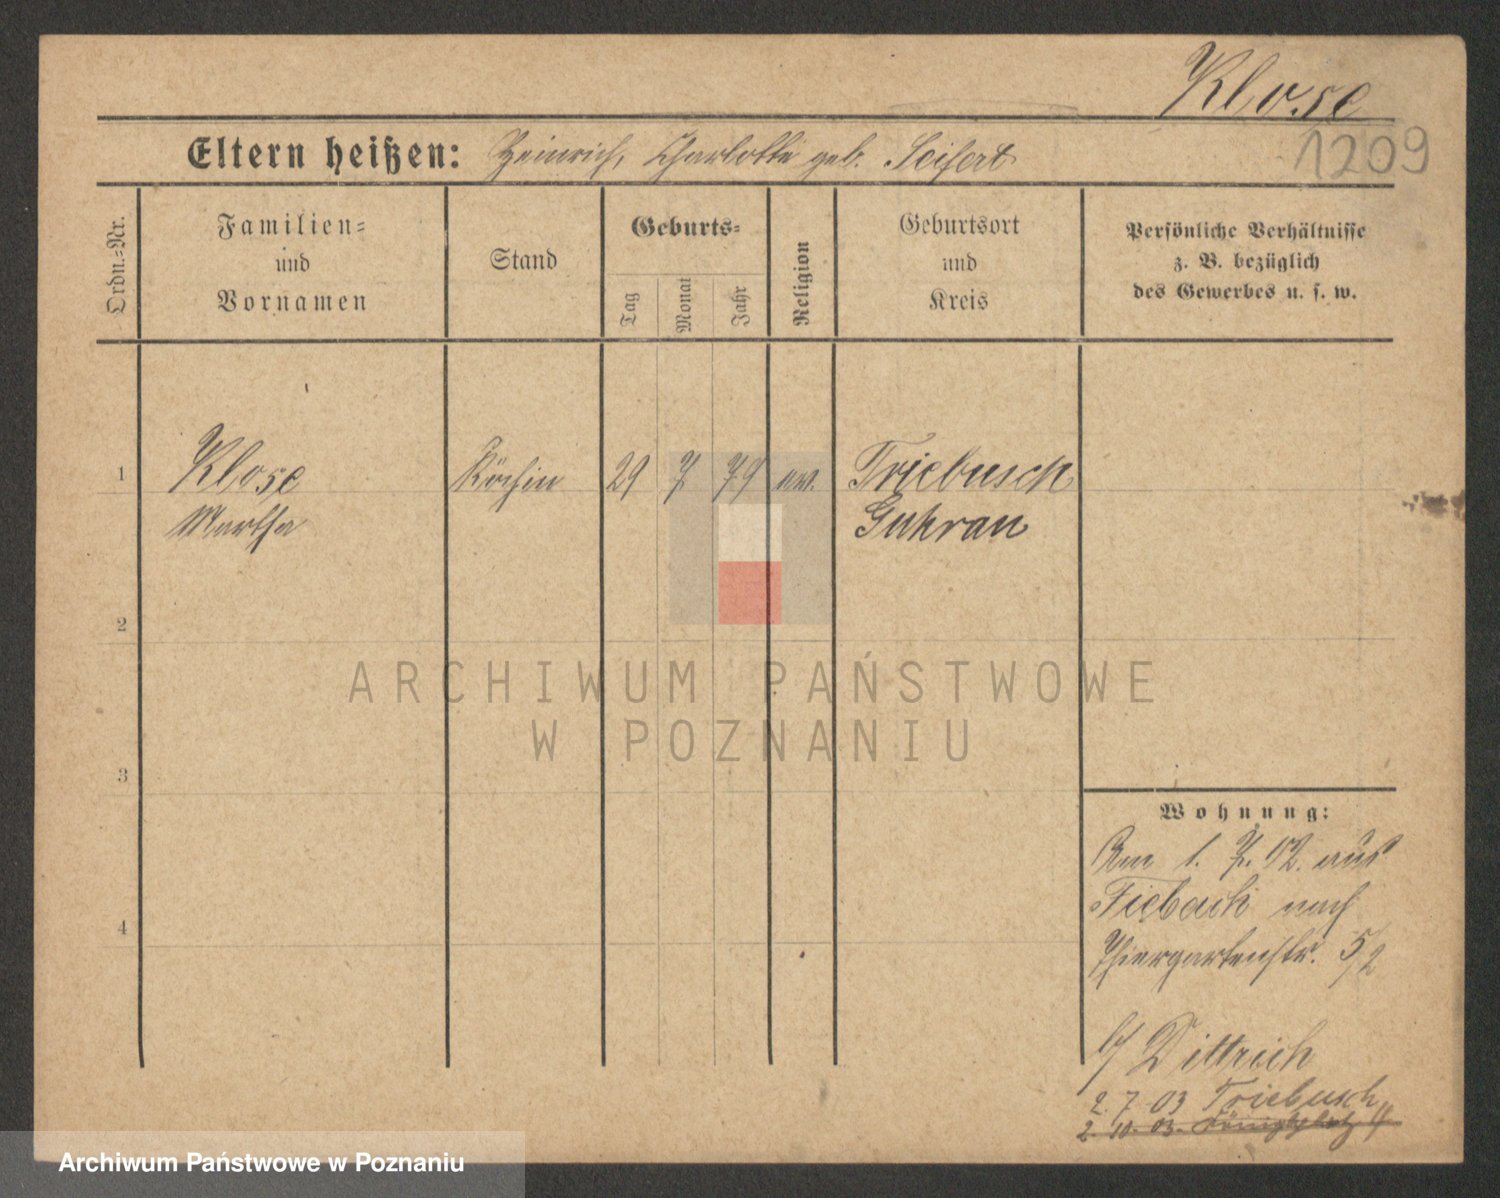 Klose
1209
Eltern heißen: Heinrich, Charlotte geb. Seifert
Ordn.-Nr.
Familien-
und
Vornamen
Stand
Geburts-
Tag
Monat
Jahr
Religion
Geburtsort
und
Kreis
Persönliche Verhältnisse
z. B. bezüglich
des Gewerbes u. s. w.
1 Klose Köchin 29 7 79 ev. Triebusch
Martha Guhrau
2
3
4
ARCHIWUM PAŃSTWOWE
W POZNANIU
Wohnung:
Am 1. 7. 02. aus
Fieback nach
Thiergartenstr. 5/2
b/ Dittrich
2. 7. 03 Triebusch
2. 10. 03. Königsplatz
Archiwum Państwowe w Poznaniu